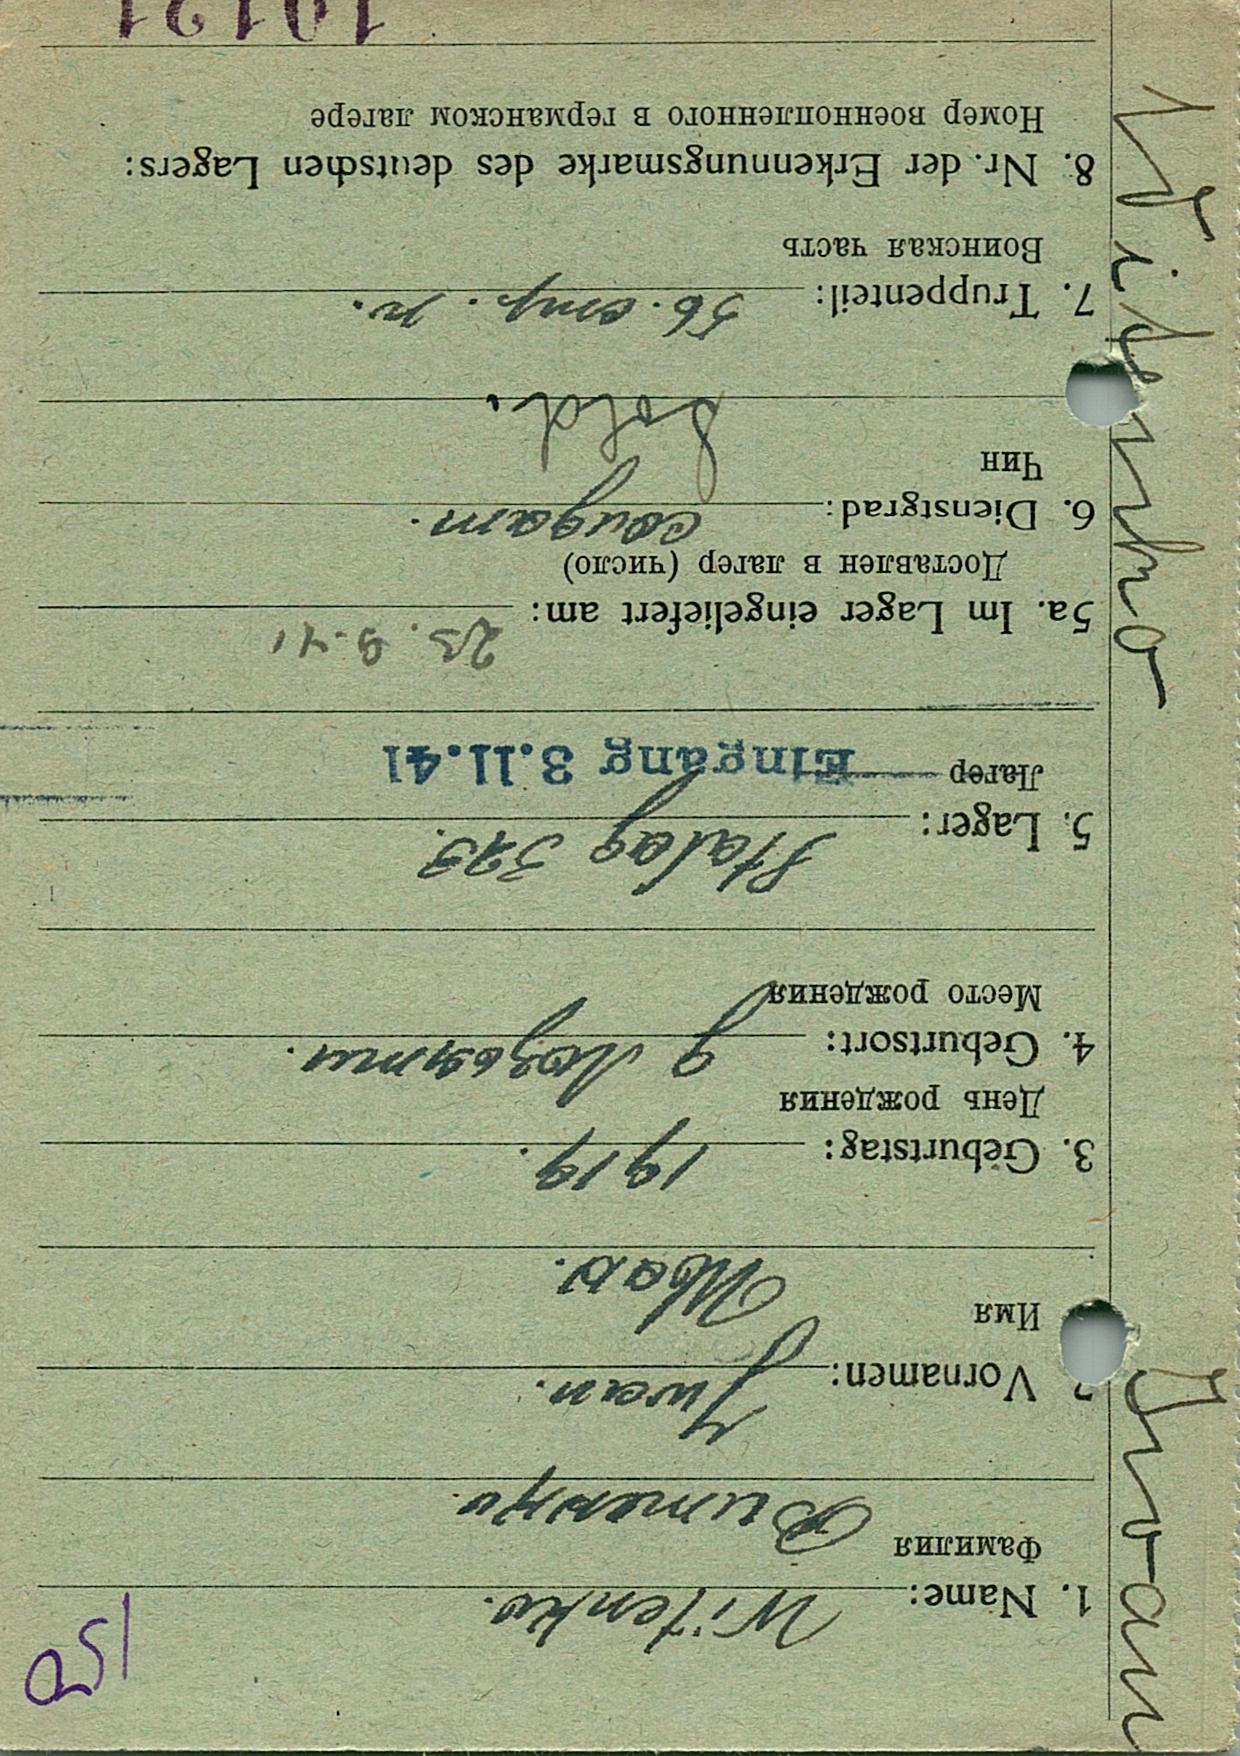 150
1. Name: Witenko.
Фамилия Витенко
2 Vornamen: Iwan.
Имя Иван.
3. Geburtstag: 1919.
День рождения
4. Geburtsort:
Место рождения
5. Lager: Stalag 373.
Лагер Eingang 3.11.41
5a. Im Lager eingeliefert am: 23. 9. 41
Доставлен в лагер (число)
6. Dienstgrad: солдат.
Чин Sold.
7. Truppenteil: 56. стр. п.
Воинская часть
8. Nr. der Erkennungsmarke des deutschen Lagers:
Номер военнопленного в германском лагере
Witenko Iwan